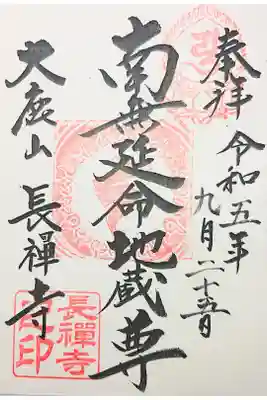 奉拝
令和五年
九月二十五日
南無延命地蔵尊
大鹿山 長禅寺
長禪寺